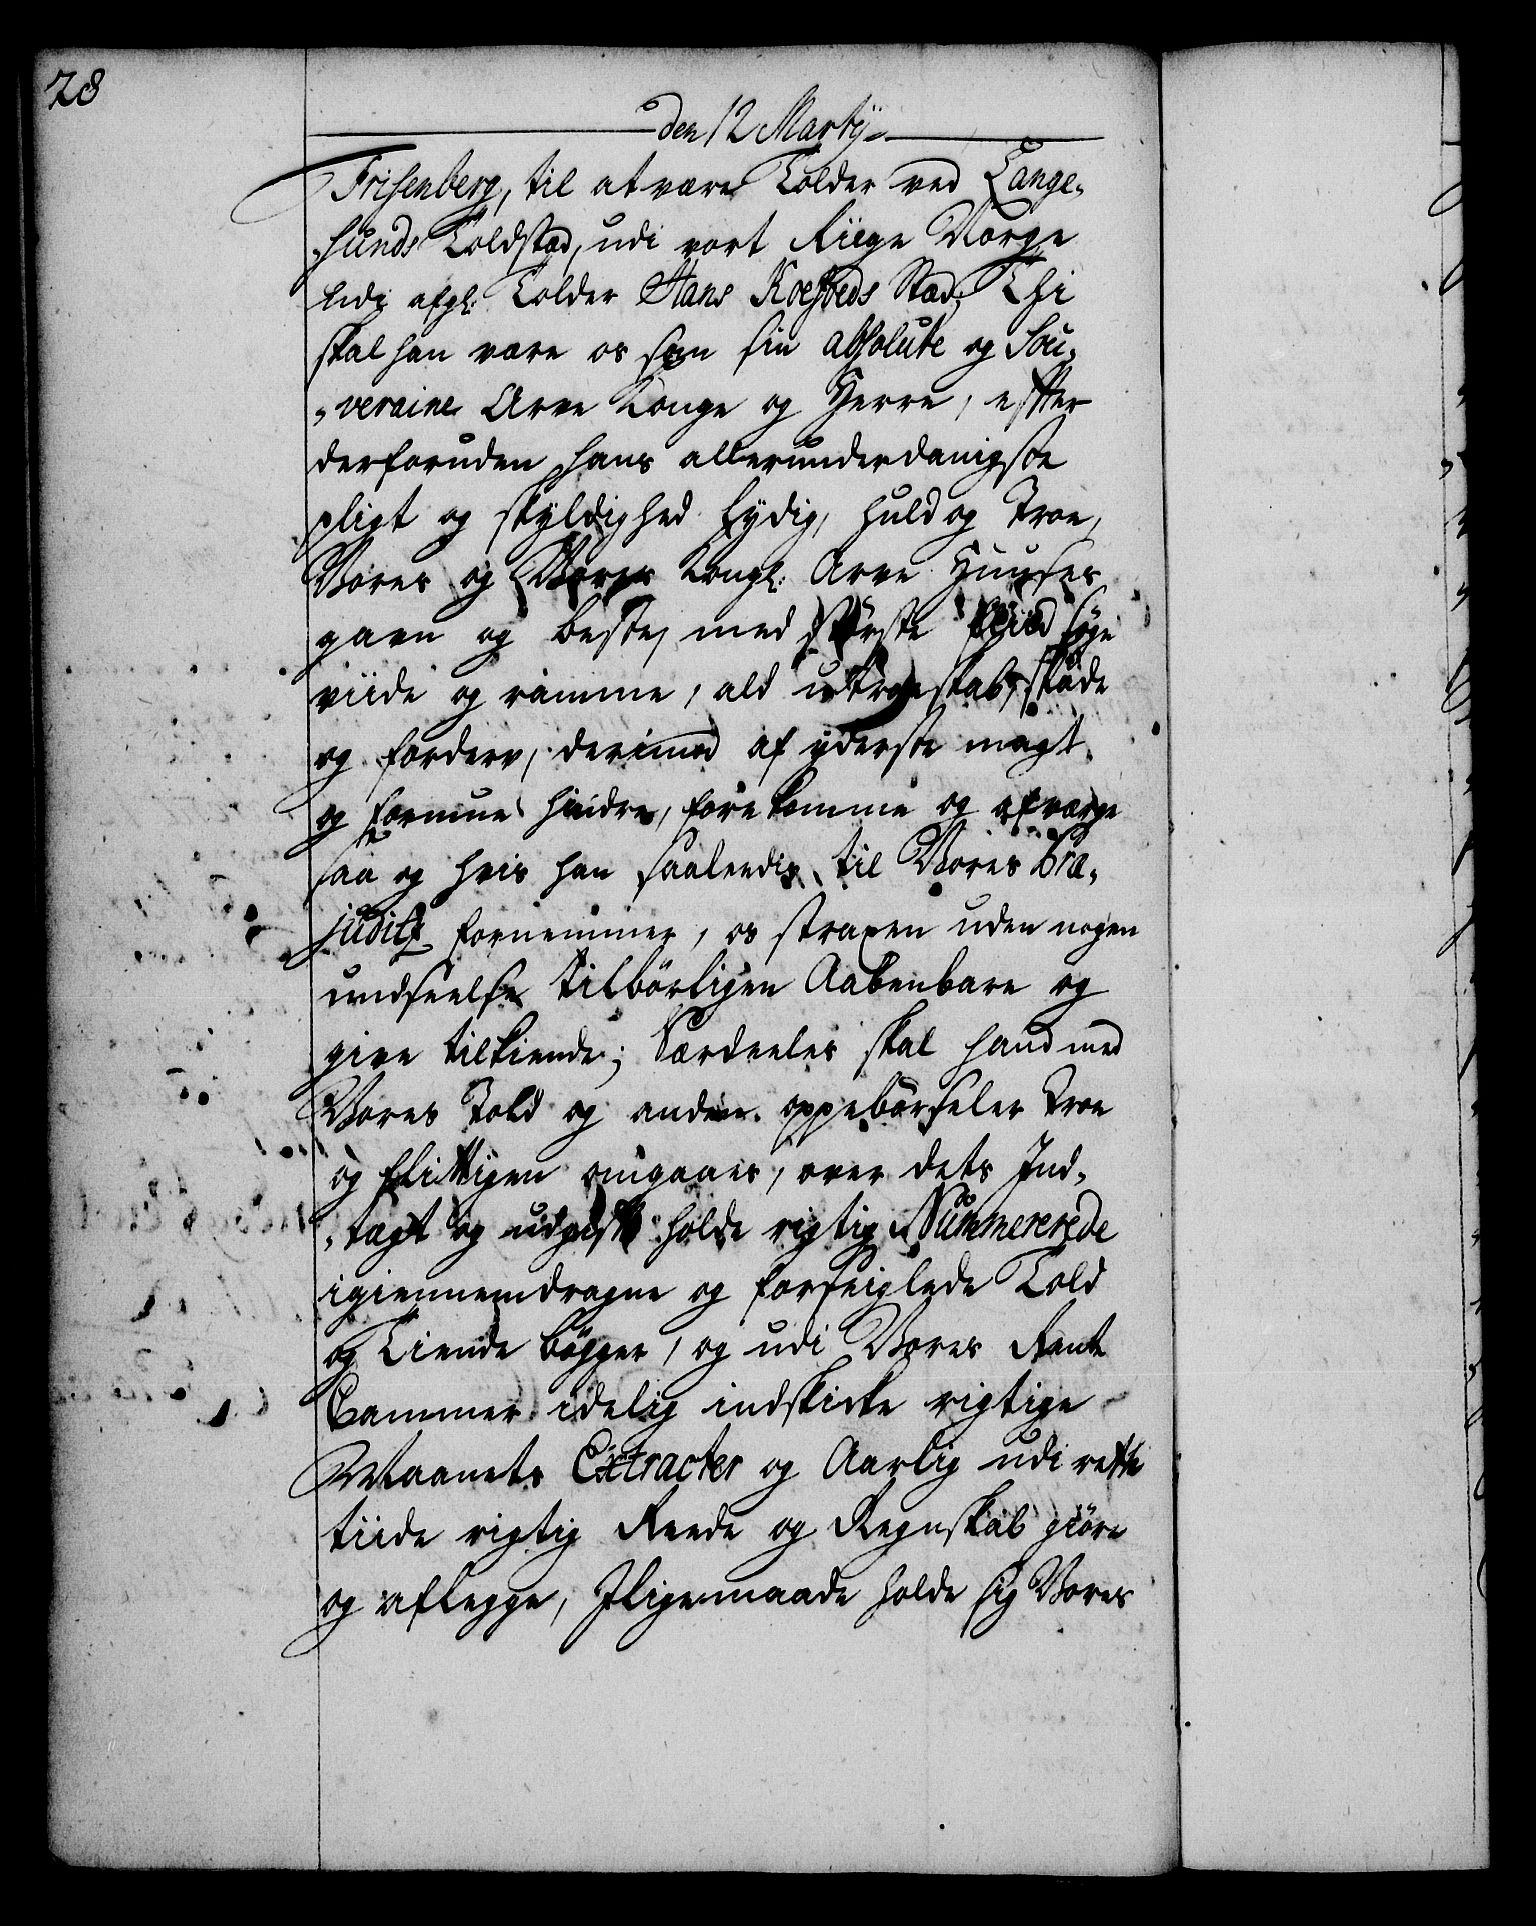 28
den 12 Martÿ
Frisenberg, til at være Tolder ved Lange-
sunds Toldsted, udi vort Riige Norge
udi afgl: Tolder Hans Koefoeds Sted, Thi
skal han være os som sin absolute og Sou-
veraine Arve Konge og Herre, effter
derforuden hans allerunderdanigste
pligt og skyldighed lydig, huld og Troe,
Vores og Vores Kongl: Arve Huuses
gavn og beste, med største fliid søge
viide og ramme, ald utroeskab, skade
og forderv, derimod af yderste magt
og formue hindre, forekomme og afværge
saa og hvis han saaleedes til Vores Præ-
juditz fornemmer, os straxen uden nogen
undseelse tilbørligen Aabenbare og
give tilkiende; Særdeeles skal hand med
Vores Told og anden oppebørseler troe
og flittigen omgaaes, over dets Ind-
tægt og udgift holde rigtig Nummererede
igiennemdragne og forseiglede Told
og Tiende bøgger, og udi Vores Rente
Cammer idelig indskicke rigtige
Maanets Extracter og Aarlig udi rette
tiide rigtig Reede og Regnskab giøre
og aflegge, Iligemaade holde sig Vores